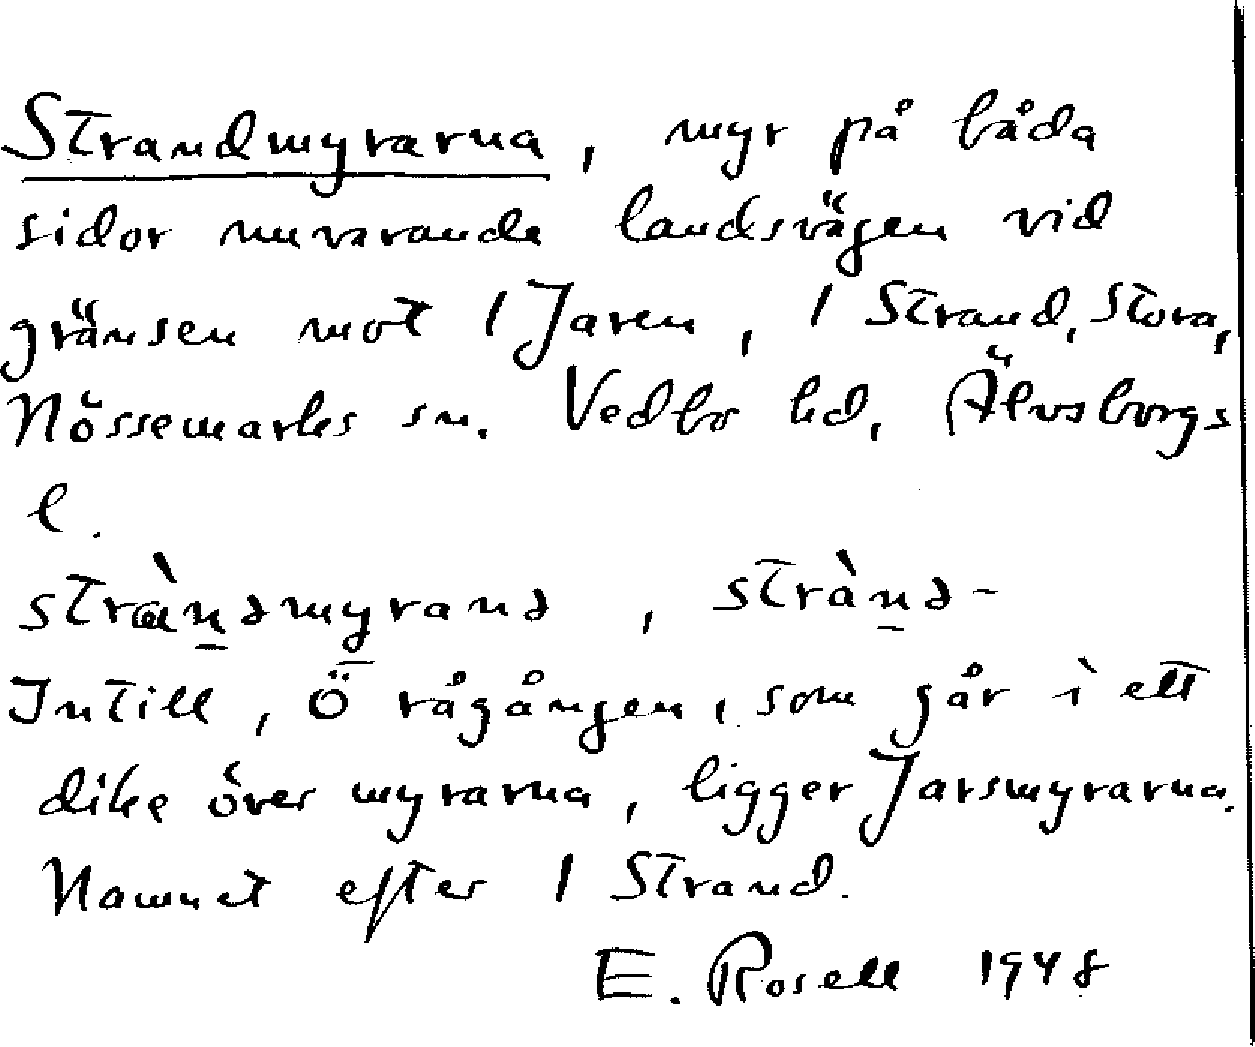 Strandmyrarna, myr på båda
sidor nuvarande landsvägen vid
gränsen mot 1 Jaren, 1 Strand, Stora,
Nössemarks sn. Vedbo hd, Älvsborgs
l.
stràn̲əmyranə, stràn̲ə-
Intill, Ö rågången, som går i ett
dike över myrarna, ligger Jarsmyrarna.
Namnet efter 1 Strand.
E. Rosell 1948